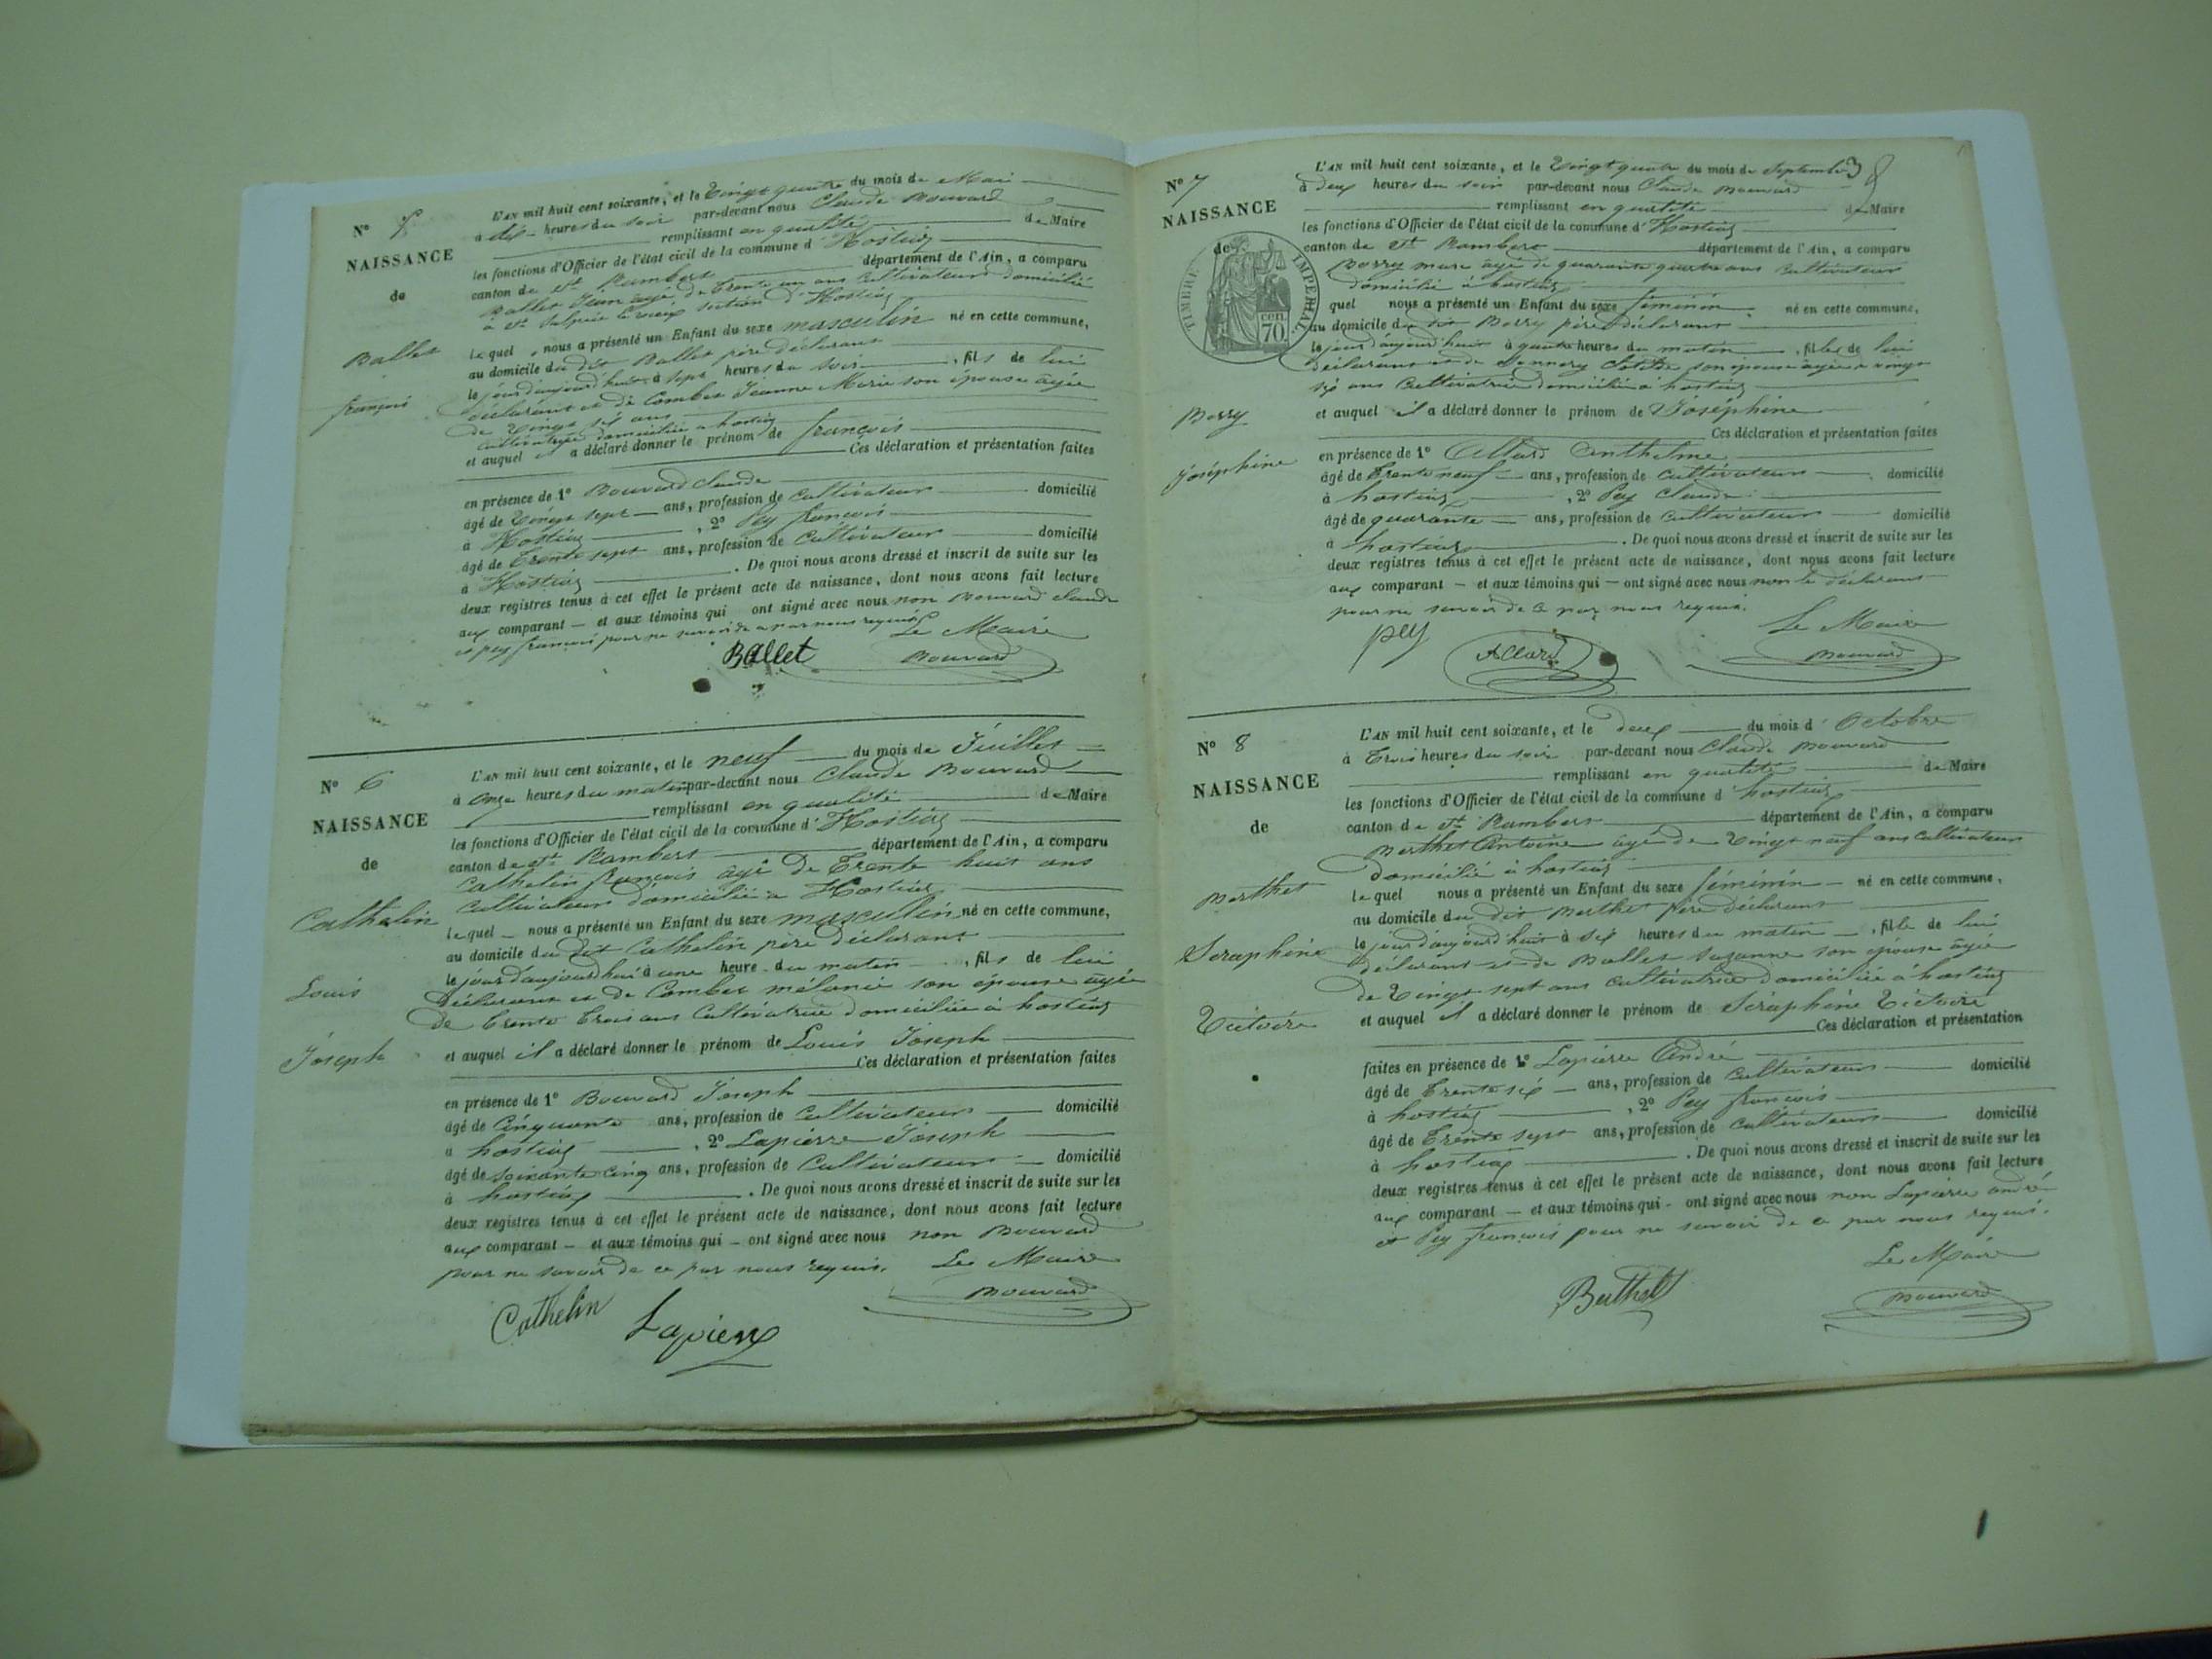 N° 5
NAISSANCE
de
Ballet
françois
L'AN mil huit cent soixante, et le Vingt quatre du mois de Mai
à dix heures du soir par-devant nous Claude Bouvard
remplissant en qualité de Maire
les fonctions d'Officier de l'état civil de la commune d'Hostiaz
canton de St Rambert département de l'Ain, a comparu
Ballet Jean âgé de trente un ans Cultivateur domicilié
à St Sulpice le vieux section d'Hostiaz
lequel nous a présenté un Enfant du sexe masculin né en cette commune,
au domicile du dit Ballet père déclarant
le jour d'aujourd'hui à sept heures du soir, fils de lui
déclarant et de Combet Jeanne Marie son épouse âgée
de Vingt six ans
Cultivatrice domiciliée à hostiaz
et auquel il a déclaré donner le prénom de françois
Ces déclaration et présentation faites
en présence de 1° Bouvard Claude
âgé de Vingt sept ans, profession de Cultivateur domicilié
à Hostiaz, 2° Pey françois
âgé de Trente sept ans, profession de Cultivateur domicilié
à Hostiaz. De quoi nous avons dressé et inscrit de suite sur les
deux registres tenus à cet effet le présent acte de naissance, dont nous avons fait lecture
aux comparant et aux témoins qui ont signé avec nous non Bouvard Claude
et pey françois pour ne savoir de ce par nous requis
Le Maire
Ballet Bouvard
N° 6
NAISSANCE
de
Cathelin
Louis
Joseph
L'AN mil huit cent soixante, et le neuf du mois de Juillet
à onze heures du matin par-devant nous Claude Bouvard
remplissant en qualité de Maire
les fonctions d'Officier de l'état civil de la commune d'Hostiaz
canton de St Rambert département de l'Ain, a comparu
Cathelin françois âgé de Trente huit ans
Cultivateur domicilié à Hostiaz
lequel nous a présenté un Enfant du sexe masculin né en cette commune,
au domicile du dit Cathelin père déclarant
le jour d'aujourd'hui à une heure du matin, fils de lui
déclarant et de Combet mélanie son épouse âgée
de trente trois ans Cultivatrice domiciliée à hostiaz
et auquel il a déclaré donner le prénom de Louis Joseph
Ces déclaration et présentation faites
en présence de 1° Bouvard Joseph
âgé de Cinquante ans, profession de Cultivateur domicilié
à hostiaz, 2° Lapierre Joseph
âgé de soixante cinq ans, profession de Cultivateur domicilié
à hostiaz. De quoi nous avons dressé et inscrit de suite sur les
deux registres tenus à cet effet le présent acte de naissance, dont nous avons fait lecture
aux comparant et aux témoins qui ont signé avec nous non Bouvard
pour ne savoir de ce par nous requis. Le Maire
Bouvard
Cathelin Lapierre
38
N° 7
NAISSANCE
de
TIMBRE IMPERIAL
70 cen.
Borry
Joséphine
L'AN mil huit cent soixante, et le Vingt quatre du mois de Septembre
à deux heures du soir par-devant nous Claude Bouvard
remplissant en qualité de Maire
les fonctions d'Officier de l'état civil de la commune d'Hostiaz
canton de St Rambert département de l'Ain, a comparu
Borry marc âgé de quarante quatre ans Cultivateur
domicilié à hostiaz
quel nous a présenté un Enfant du sexe féminin né en cette commune,
au domicile du dit Borry père déclarant
le jour d'aujourd'hui à quatre heures du matin, fille de lui
déclarant et de son épouse âgée de vingt
six ans Cultivatrice domiciliée à hostiaz
et auquel il a déclaré donner le prénom de Joséphine
Ces déclaration et présentation faites
en présence de 1° Allard Anthelme
âgé de trente neuf ans, profession de Cultivateur domicilié
à hostiaz, 2° Pey Claude
âgé de quarante ans, profession de Cultivateur domicilié
à hostiaz. De quoi nous avons dressé et inscrit de suite sur les
deux registres tenus à cet effet le présent acte de naissance, dont nous avons fait lecture
aux comparant et aux témoins qui ont signé avec nous non le déclarant
pour ne savoir de ce par nous requis.
Le Maire
pey Allard Bouvard
N° 8
NAISSANCE
de
Berthet
Séraphine
Victoire
L'AN mil huit cent soixante, et le deux du mois d'Octobre
à Trois heures du soir par-devant nous Claude Bouvard
remplissant en qualité de Maire
les fonctions d'Officier de l'état civil de la commune d'hostiaz
canton de St Rambert département de l'Ain, a comparu
Berthet Antoine âgé de Vingt neuf ans Cultivateur
domicilié à hostiaz
lequel nous a présenté un Enfant du sexe féminin né en cette commune,
au domicile du dit Berthet père déclarant
le jour d'aujourd'hui à six heures du matin, fille de lui
déclarant et de Ballet Suzanne son épouse âgée
de Vingt sept ans Cultivatrice domiciliée à hostiaz
et auquel il a déclaré donner le prénom de Séraphine Victoire
Ces déclaration et présentation
faites en présence de 1° Lapierre André
âgé de trente six ans, profession de Cultivateur domicilié
à hostiaz, 2° Pey françois
âgé de trente sept ans, profession de Cultivateur domicilié
à hostiaz. De quoi nous avons dressé et inscrit de suite sur les
deux registres tenus à cet effet le présent acte de naissance, dont nous avons fait lecture
aux comparant et aux témoins qui ont signé avec nous non Lapierre andré
et Pey françois pour ne savoir de ce par nous requis.
Le Maire
Berthet Bouvard